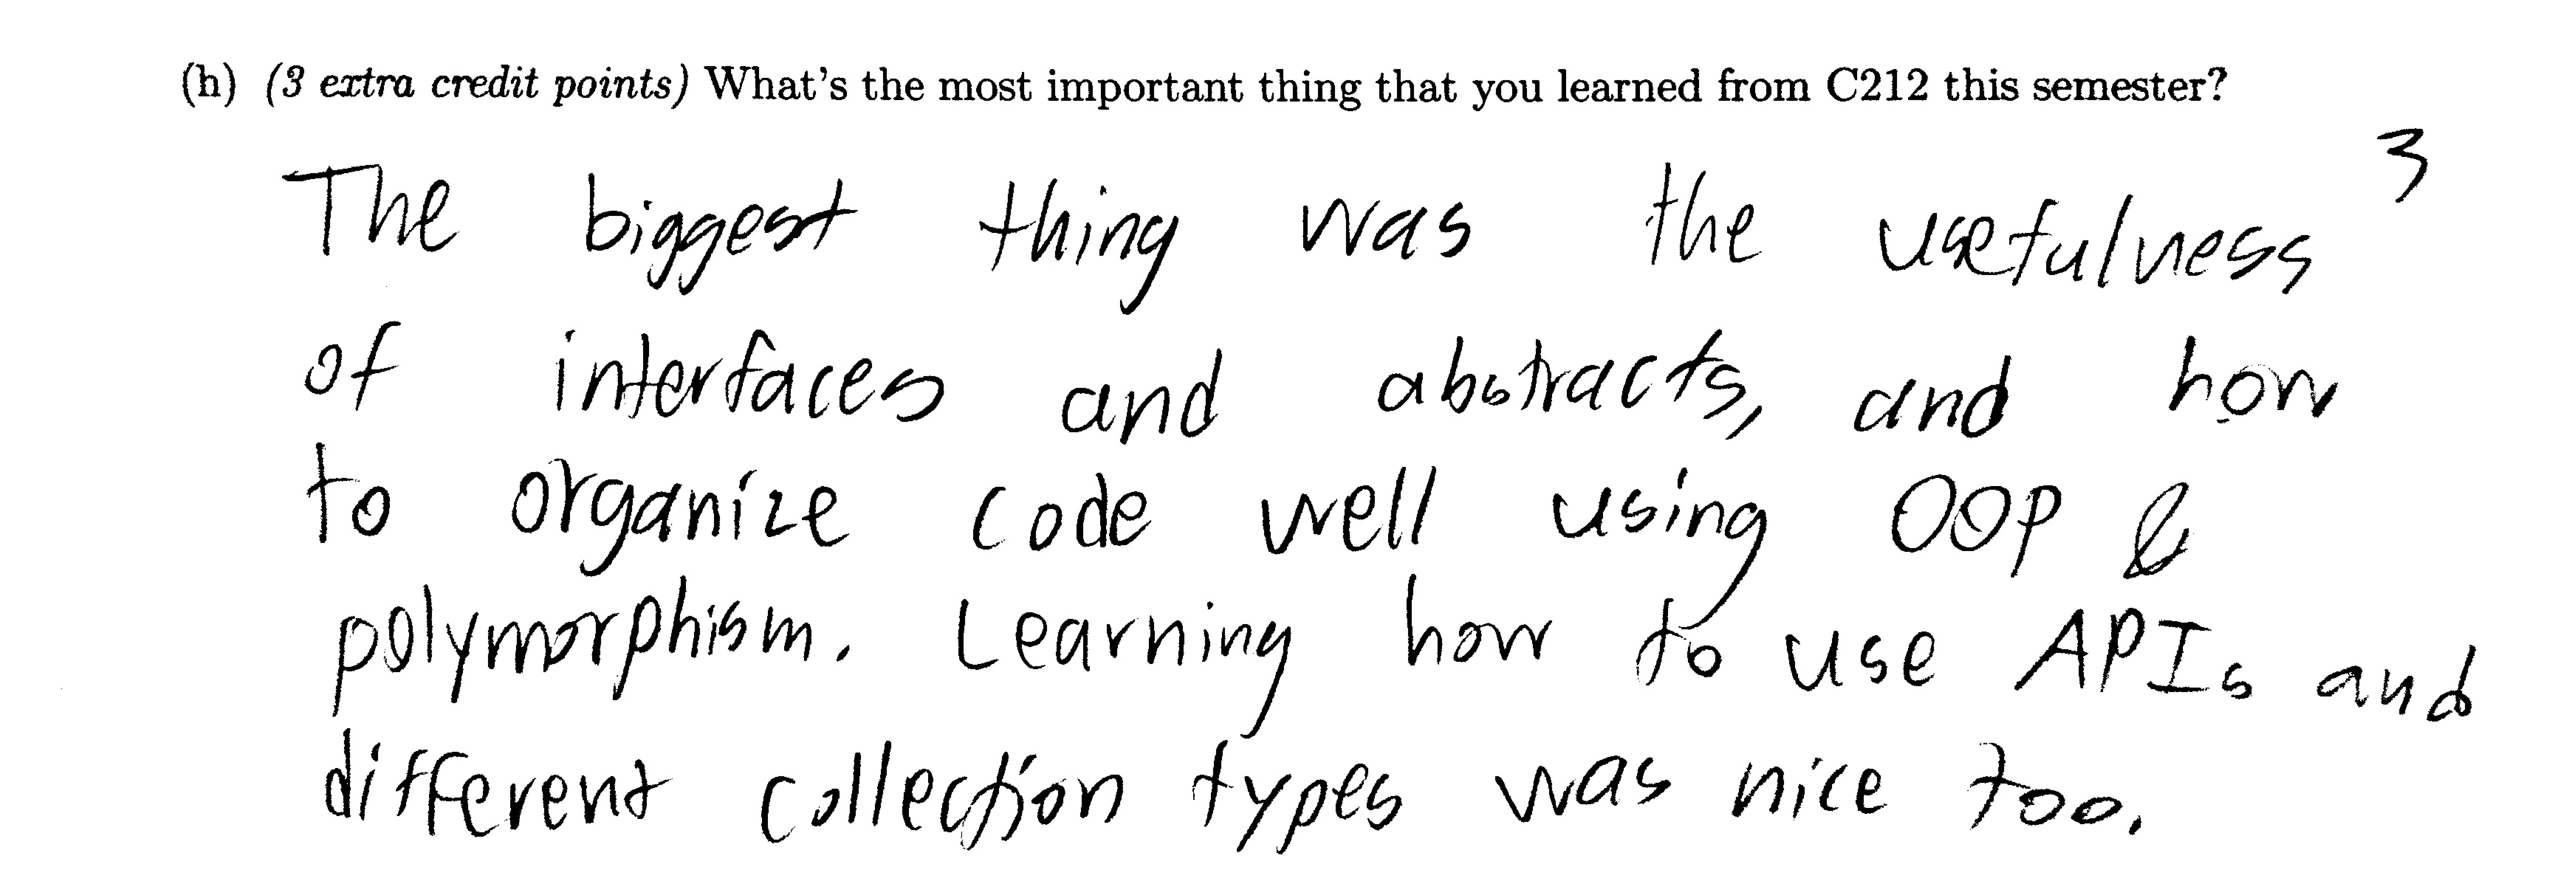 (h) (3 extra credit points) What's the most important thing that you learned from C212 this semester?
3
The biggest thing was the usefulness
of interfaces and abstracts, and how
to organize code well using OOP &
polymorphism. Learning how to use APIs and
different collection types was nice too.